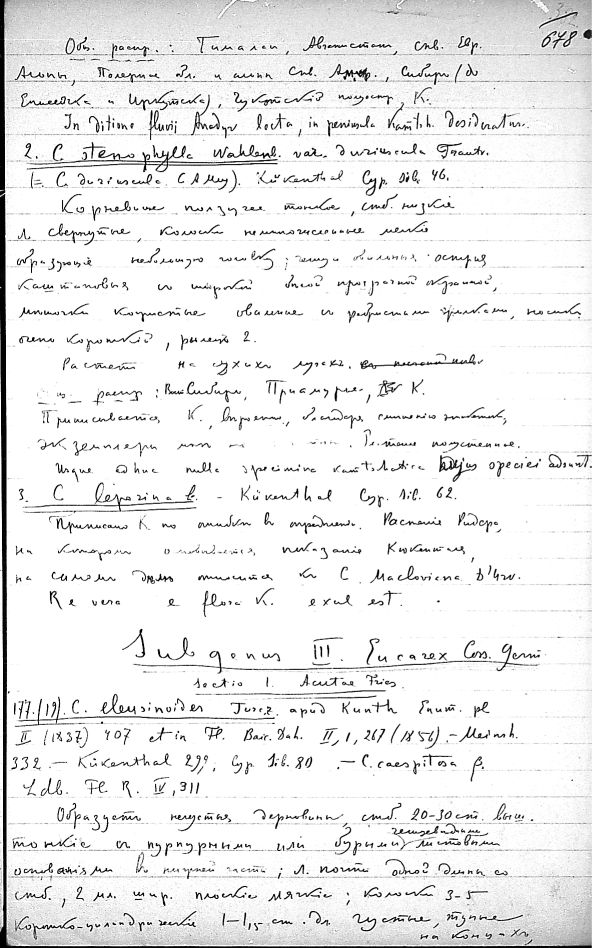 678
Общ. распр.: Гималаи, Авганистан, сѣв. Евр.
Альпы, Полярные обл. и альпы Сѣв. Амер., Сибирь (до
Енисейска и Иркутска), Чукотскій полуостр., К.
In ditione fluvii Anadyr lecta, in peninsula Kamtsch. desideratur.
2. C. stenophylla Wahlenb. var. duriuscula Trautv.
(= C. duriuscula C A Mey). Kükenthal Cyp. Sib. 46.
Корневище ползучее тонкое, стб. низкіе
Л. свернутые, колоски немногочисленные мелкіе
образующіе небольшую головку; чешуи овальныя острыя
каштановыя съ широкой бѣлой прозрачной окраиной,
мѣшочки кожистые овальные съ ребристыми жилками, носикъ
очень короткій, рылецъ 2.
Растетъ на сухихъ лугахъ.
распр.: Вост. Сибирь, Приамурье, К.
Приписывается К., вѣроятно, благодаря
экземпляри Растение пустынное.
Usque adhuc nulla specimina kamtschatica hujus speciei adsunt.
3. C. leporina L. - Kükenthal Cyp. Sib. 62.
Приписано К. по ошибкѣ въ опредѣленіи. Растение Ридера,
на котором основывается показаніе Кюкенталя,
на самомъ дѣлѣ относится къ C. Macloviana D'Urv.
Re vera e flora K. exul est.
Subgenus III. Eucarex Coss. Germ.
Sectio 1. Acutae Fries.
177. (19). C. eleusinoides Turcz. apud Kunth Enum. pl
II (1837) 407 et in Fl. Baic. Dah. II, 1, 267 (1856). - Meinsh.
332. - Kükenthal 299, Cyp. Sib. 80. - C. caespitosa β.
Ldb. Fl. R. IV, 311
Образуетъ негустыя дерновины, стб. 20-30 ст. выш.
тонкіе съ пурпурными или бурыми чешуевидными листовыми
основаніями въ нижней части; л. почти одной длины со
стб., 2 мм. шир. плоскіе мягкіе; колоски 3-5
коротко-цилиндрическіе 1-1,5 ст. дл. густые, тупые
на концахъ,